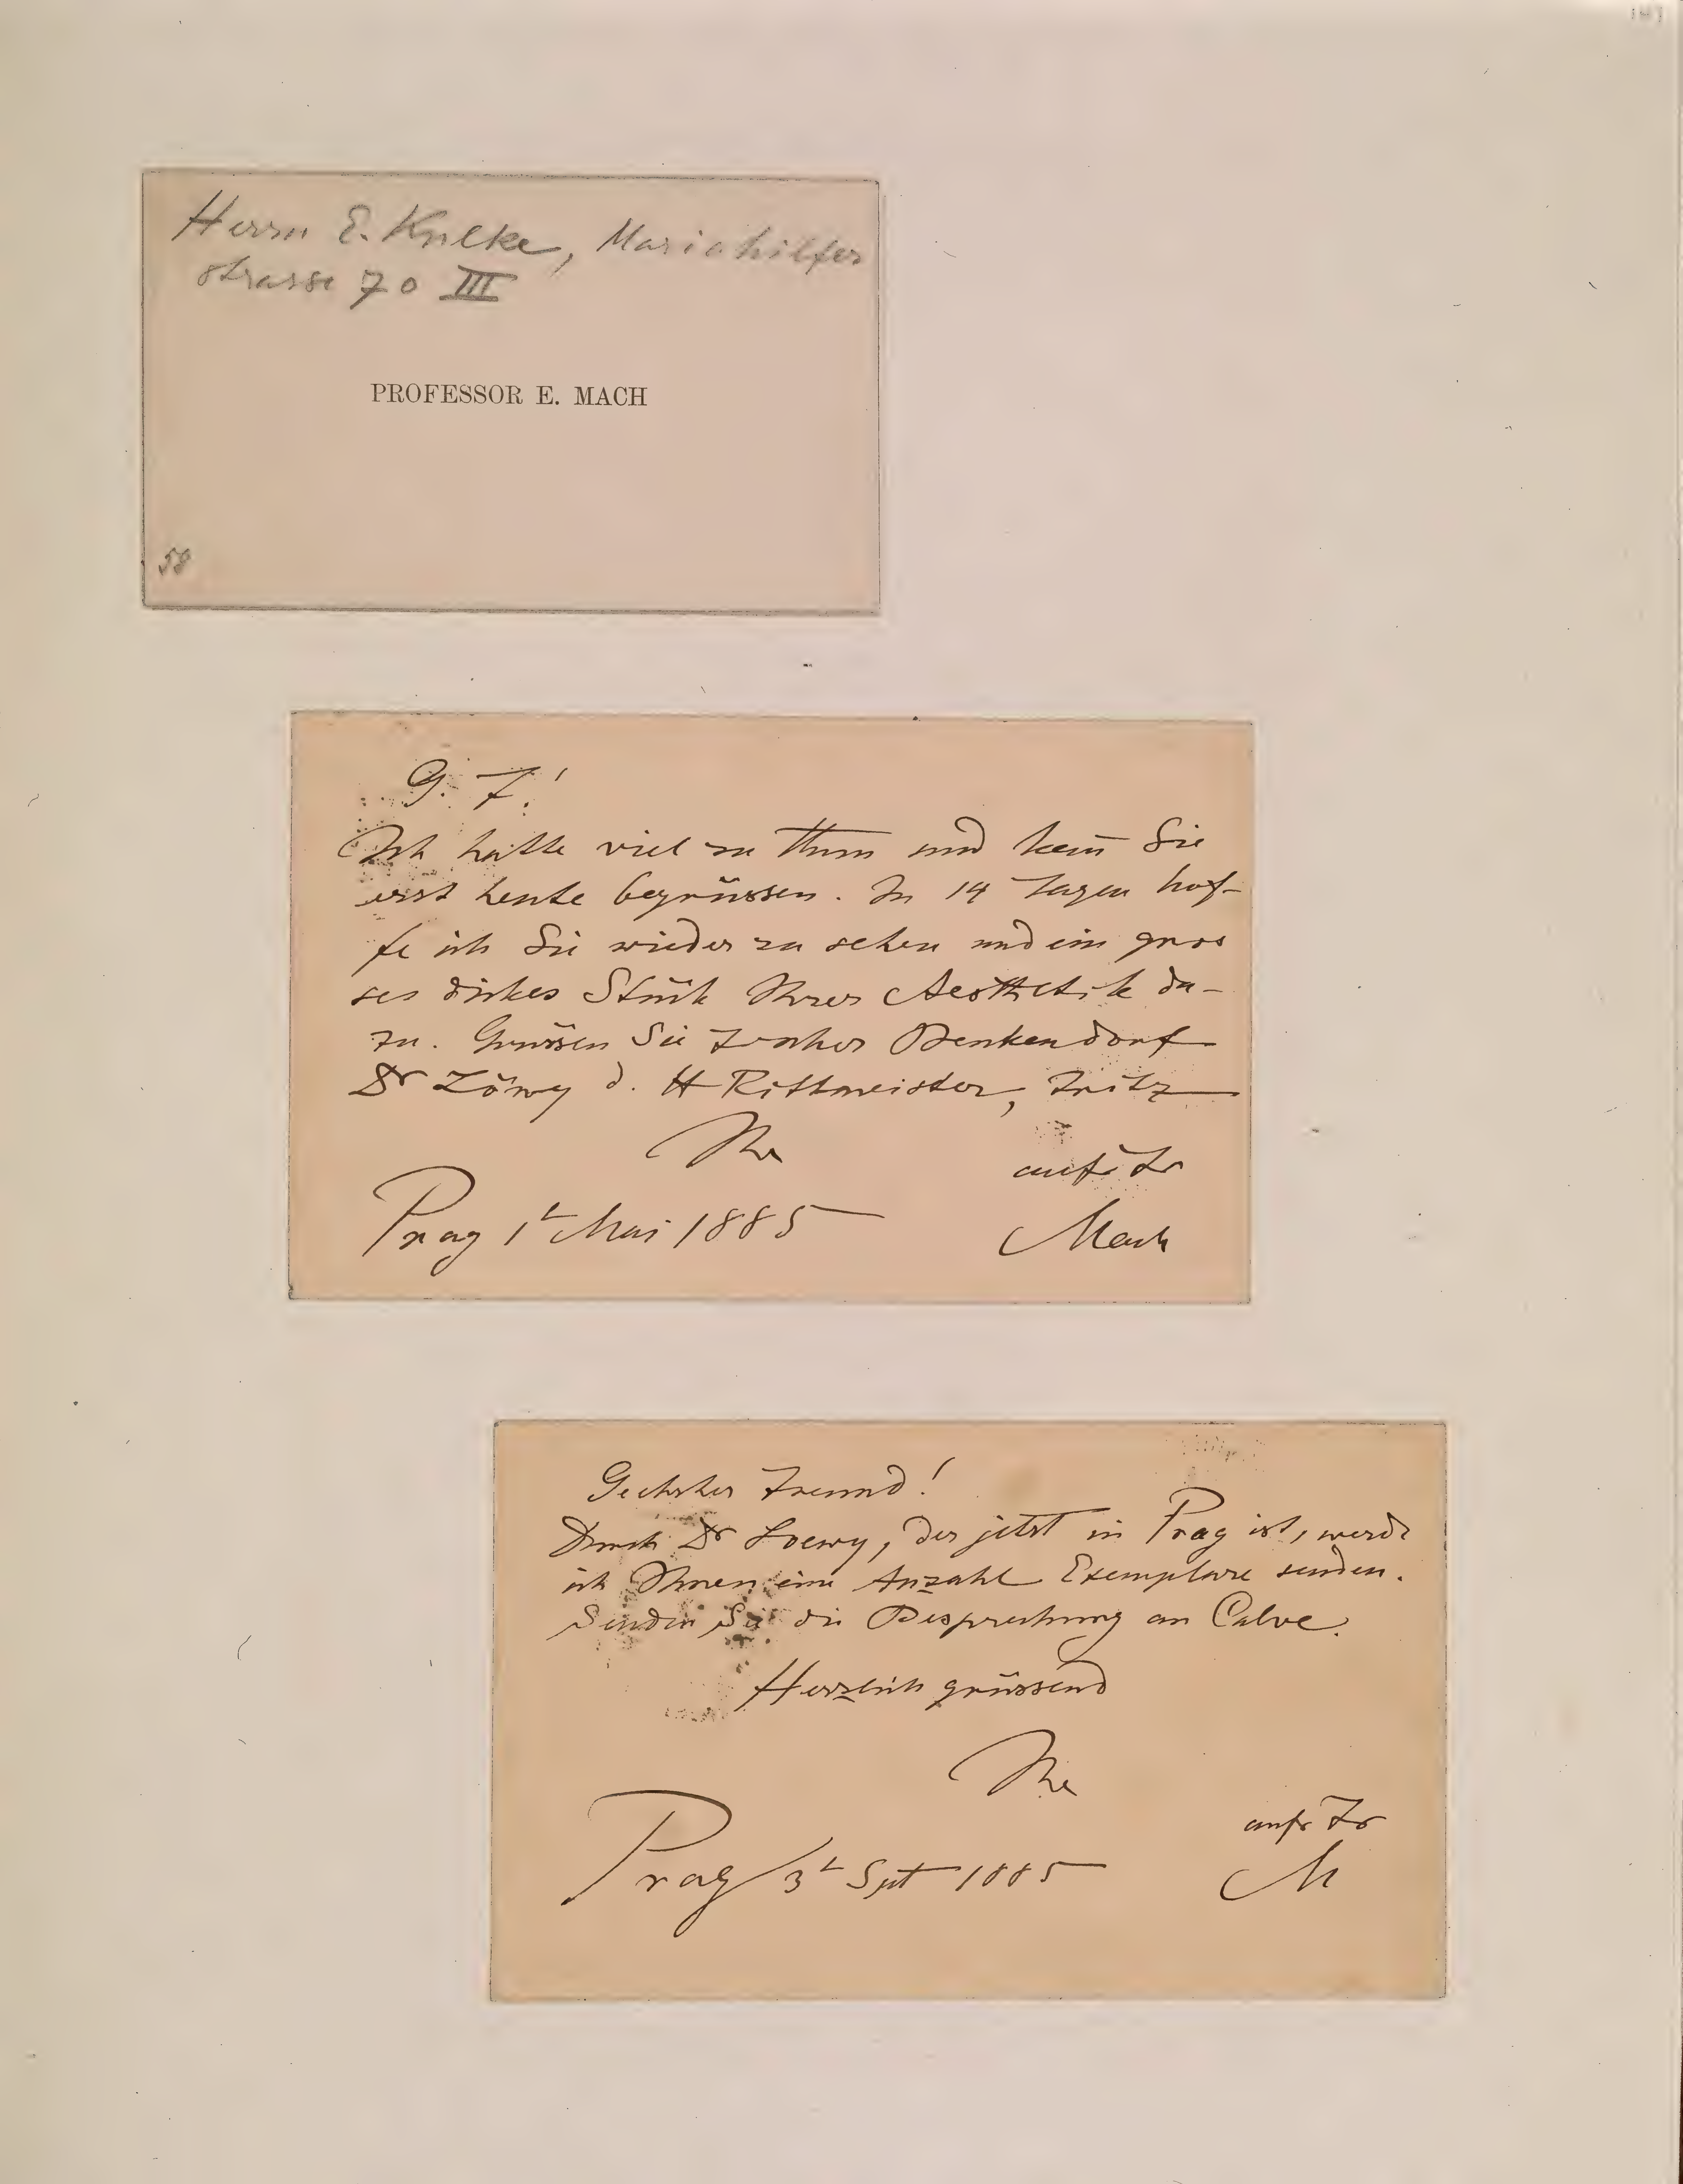 Herrn E. Kulke, Mariahilfer
strasse 70 III
PROFESSOR E. MACH
58
G. F!
Ich hatte viel zu thun und kan̄ Sie
erst heute begrüssen. In 14 Tagen hof-
fe ich Sie wieder zu sehen und ein gros
ses dickes Stück Ihrer Aesthetik da-
zu. Grüssen Sie Benkendorf
Dr Löwy d. H Rittmeister, Fritz
Ihr
aufr Fr
Prag 1t Mai 1885
Mach
Geehrter Freund!
Durch Dr Loewy, der jetzt in Prag ist, werde
ich Ihnen eine Anzahl Exemplare senden.
Senden Sie die Besprechung an Calve.
Herzlich grüssend
Ihr
aufr Fr
Prag 3t Spt 1885
M